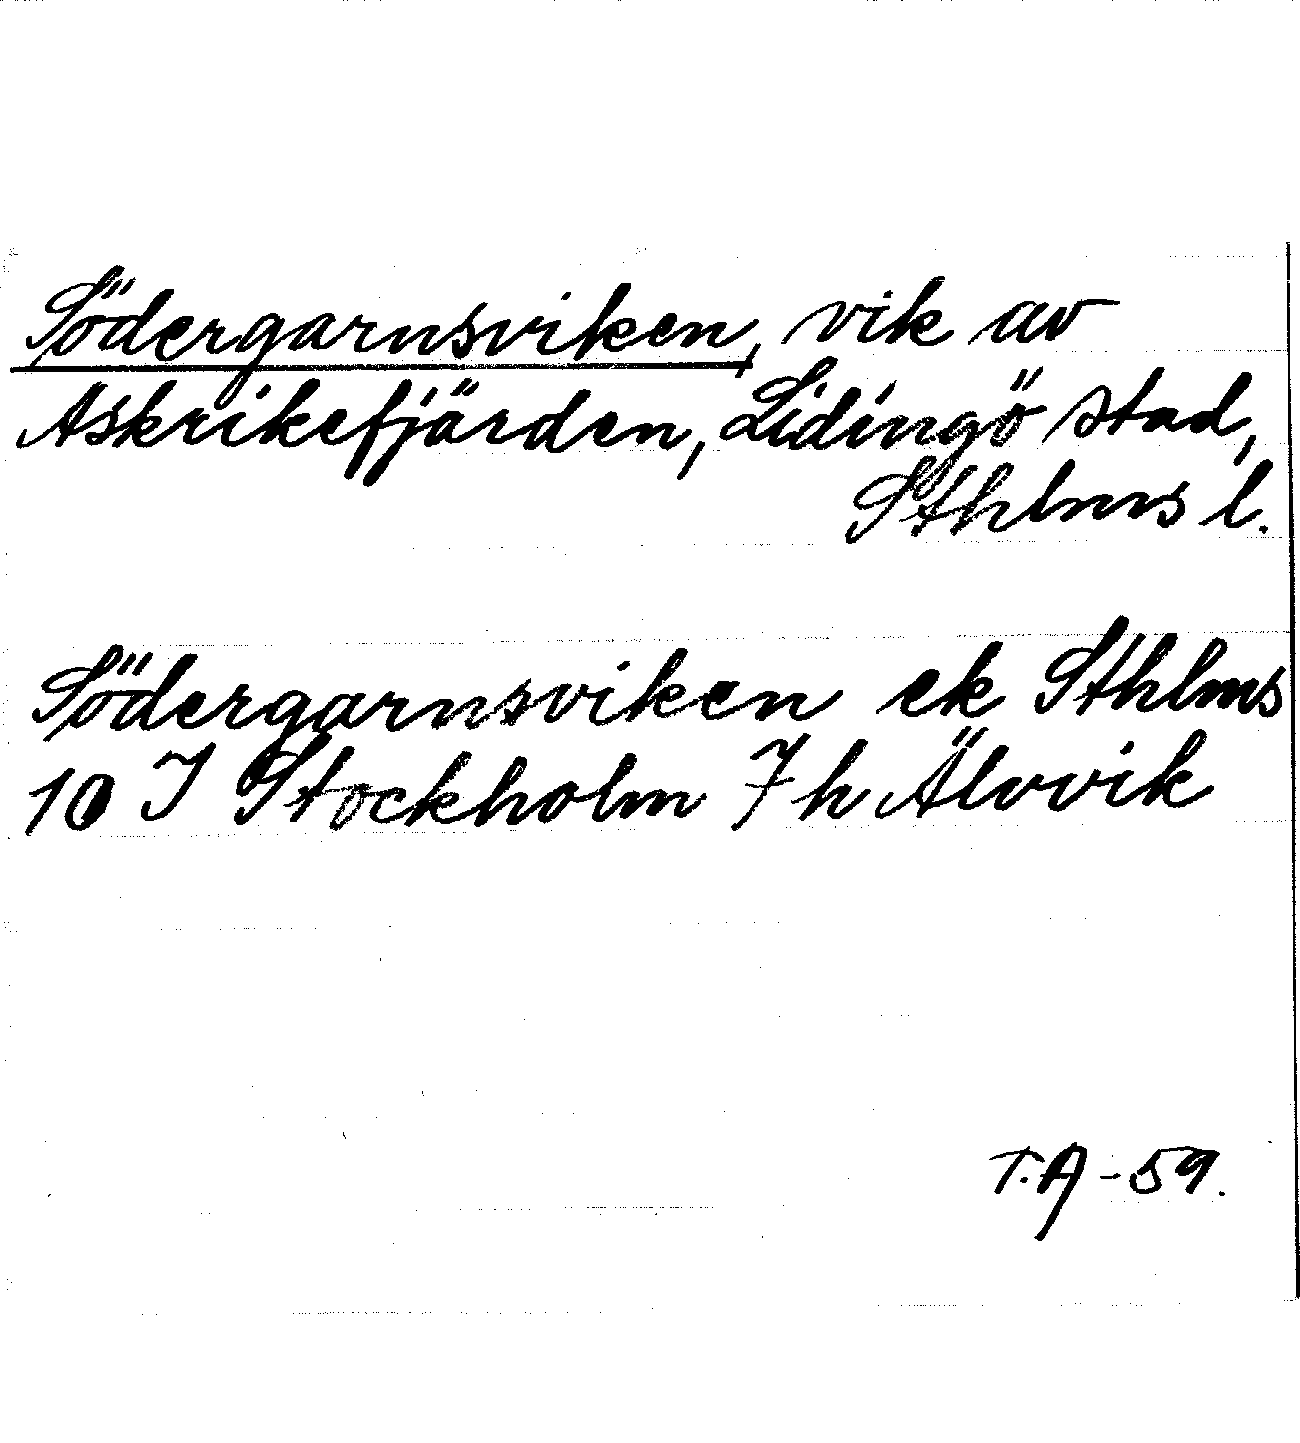 Södergarnsviken, vik av
Askrikefjärden, Lidingö stad,
Sthlms l.
Södergarnsviken ek Sthlms
10 I Stockholm 7 h Älvvik
T.A -59.